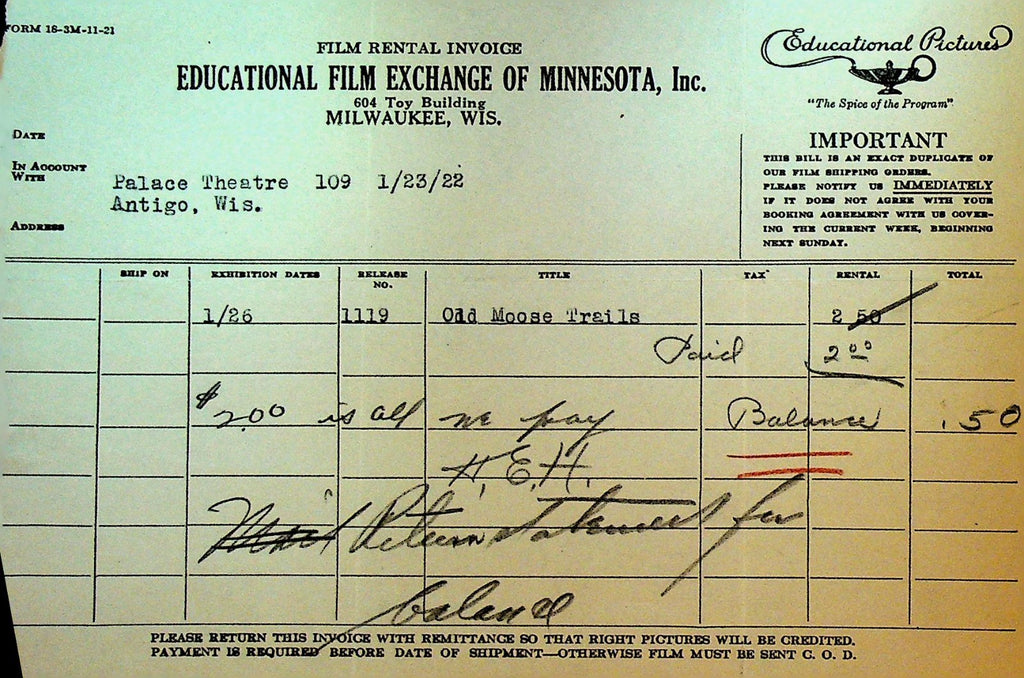 FORM 18-3M-11-21
FILM RENTAL INVOICE
EDUCATIONAL FILM EXCHANGE OF MINNESOTA, Inc.
604 Toy Building
MILWAUKEE, WIS.
Educational Pictures
"The Spice of the Program"
DATE
IN ACCOUNT
WITH
Palace Theatre 109 1/23/22
Antigo, Wis.
ADDRESS
IMPORTANT
THIS BILL IS AN EXACT DUPLICATE OF
OUR FILM SHIPPING ORDERS.
PLEASE NOTIFY US IMMEDIATELY
IF IT DOES NOT AGREE WITH YOUR
BOOKING AGREEMENT WITH US COVER-
ING THE CURRENT WEEK, BEGINNING
NEXT SUNDAY.
SHIP ON EXHIBITION DATES RELEASE NO. TITLE TAX RENTAL TOTAL
1/26 1119 Old Moose Trails 2 50
Paid 2 00
$2.00 is all we pay Balance .50
H. E. H.
Mail Return statement for
balance
PLEASE RETURN THIS INVOICE WITH REMITTANCE SO THAT RIGHT PICTURES WILL BE CREDITED.
PAYMENT IS REQUIRED BEFORE DATE OF SHIPMENT—OTHERWISE FILM MUST BE SENT C. O. D.